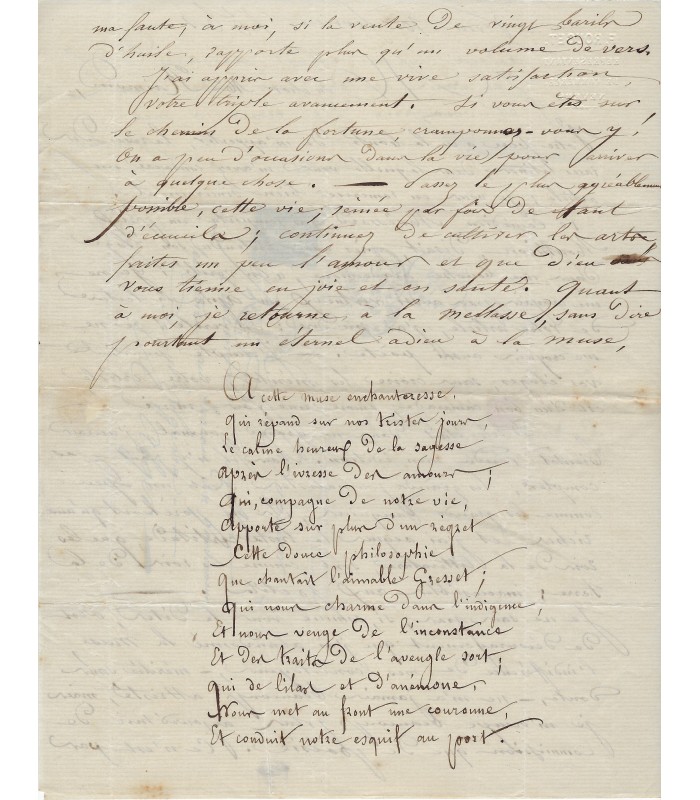 ma faute, à moi, si la vente de vingt barils
d'huile, rapporte plus qu'un volume de vers.
J'ai appris avec une vive satisfaction,
votre triple avancement. Si vous êtes sur
le chemin de la fortune, cramponnez-vous y!
On a peu d'occasions dans la vie pour arriver
à quelque chose. — Passez le plus agréablement
possible, cette vie, semée par fois de tant
d'écueils; continuez de cultiver les arts,
faites un peu l'amour et que Dieu
vous tienne en joie et en santé. Quant
à moi, je retourne à la mellasse, sans dire
pourtant un éternel adieu à la muse,
A cette muse enchanteresse,
Qui répand sur nos tristes jours,
Le calme heureux de la sagesse
Après l'ivresse des amours;
Qui, compagne de notre vie,
Apporte sur plus d'un regret
Cette douce philosophie
Que chantait l'aimable Gresset;
Qui nous charme dans l'indigence,
Et nous venge de l'inconstance
Et des traits de l'aveugle sort;
Qui de lilas et d'anémone,
Nous met au front une couronne,
Et conduit notre esquif au port.